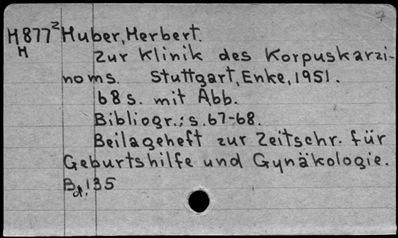 H877² Huber, Herbert.
H Zur Klinik des Korpuskarzi-
noms. Stuttgart, Enke, 1951.
68 s. mit Abb.
Bibliogr.: s. 67-68.
Beilageheft zur Zeitschr. für
Geburtshilfe und Gynäkologie.
Bd. 135